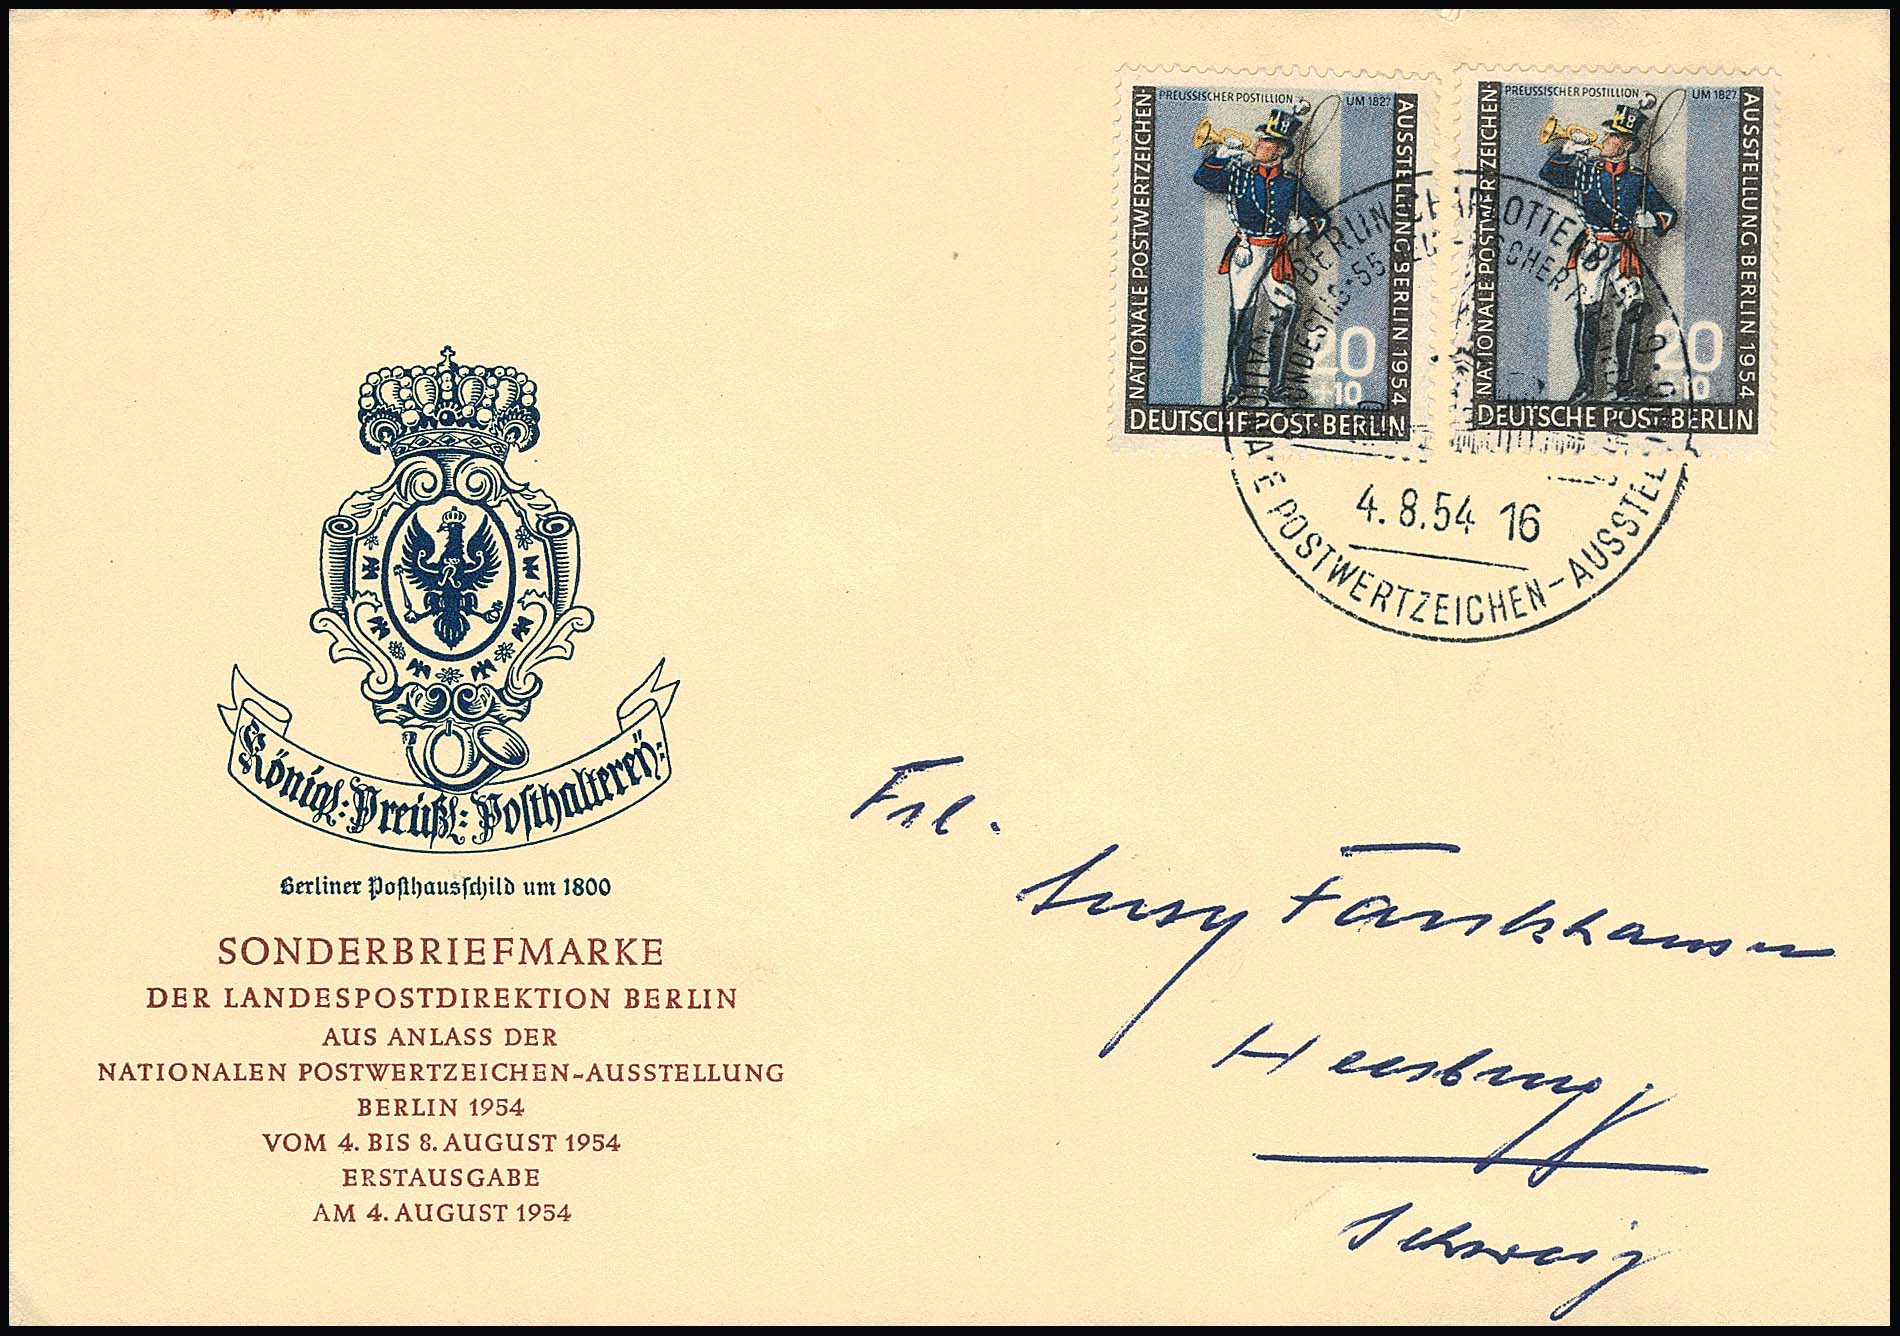 PREUSSISCHER POSTILLION UM 1827
NATIONALE POSTWERTZEICHEN-
AUSSTELLUNG BERLIN 1954
20
+10
DEUTSCHE POST·BERLIN
PREUSSISCHER POSTILLION UM 1827
NATIONALE POSTWERTZEICHEN-
AUSSTELLUNG BERLIN 1954
20
+10
DEUTSCHE POST·BERLIN
BERLIN-CHARLOTTENBURG 9
4.8.54 16
POSTWERTZEICHEN-AUSSTELL
R
Königl: Preußl: Posthalterëy:
Berliner Posthausschild um 1800
SONDERBRIEFMARKE
DER LANDESPOSTDIREKTION BERLIN
AUS ANLASS DER
NATIONALEN POSTWERTZEICHEN-AUSSTELLUNG
BERLIN 1954
VOM 4. BIS 8. AUGUST 1954
ERSTAUSGABE
AM 4. AUGUST 1954
Frl.
Susy Fankhauser
Heerbrugg
Schweiz